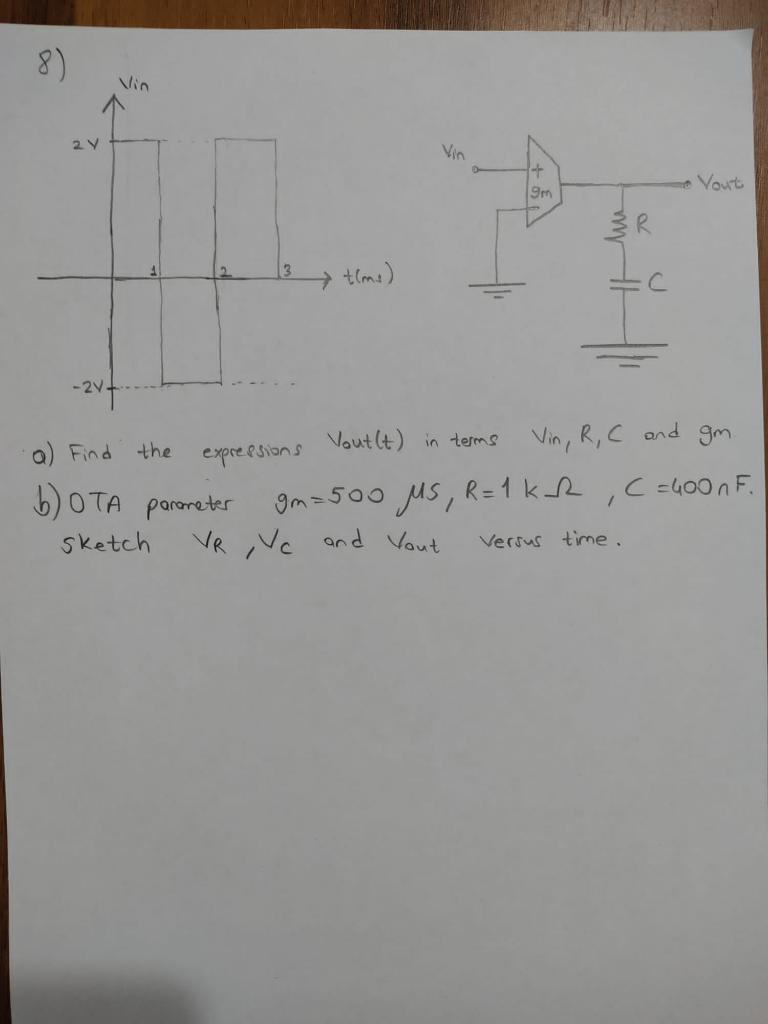 8)
Vin
2V
1 2 3 t(ms)
-2V
Vin + gm Vout
R
C
a) Find the expressions Vout(t) in terms Vin, R, C and gm
b) OTA parameter gm=500 μS, R=1 kΩ, C=400nF.
sketch VR, VC and Vout versus time.